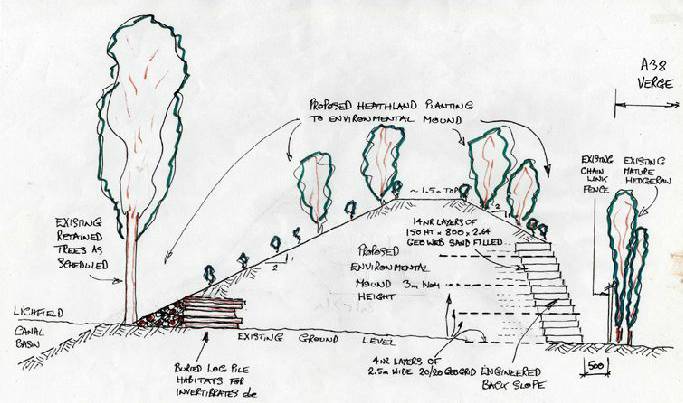 A38
VERGE
PROPOSED HEATHLAND PLANTING
TO ENVIRONMENTAL MOUND
EXISTING
CHAIN
LINK
FENCE
EXISTING
MATURE
HEDGEROW
~ 1.5m TOP
2
1
14 NR LAYERS OF
150 HT x 800 x 2.64
GEOWEB SAND FILLED
EXISTING
RETAINED
TREES AS
SCHEDULED
PROPOSED
ENVIRONMENTAL
MOUND 3m NOM
HEIGHT
2
1
LICHFIELD
CANAL
BASIN
EXISTING GROUND LEVEL
BURIED LOG PILE
HABITATS FOR
INVERTEBRATES etc
4 NR LAYERS OF
2.5m WIDE 20/20 GEOGRID
ENGINEERED
BACK SLOPE
500